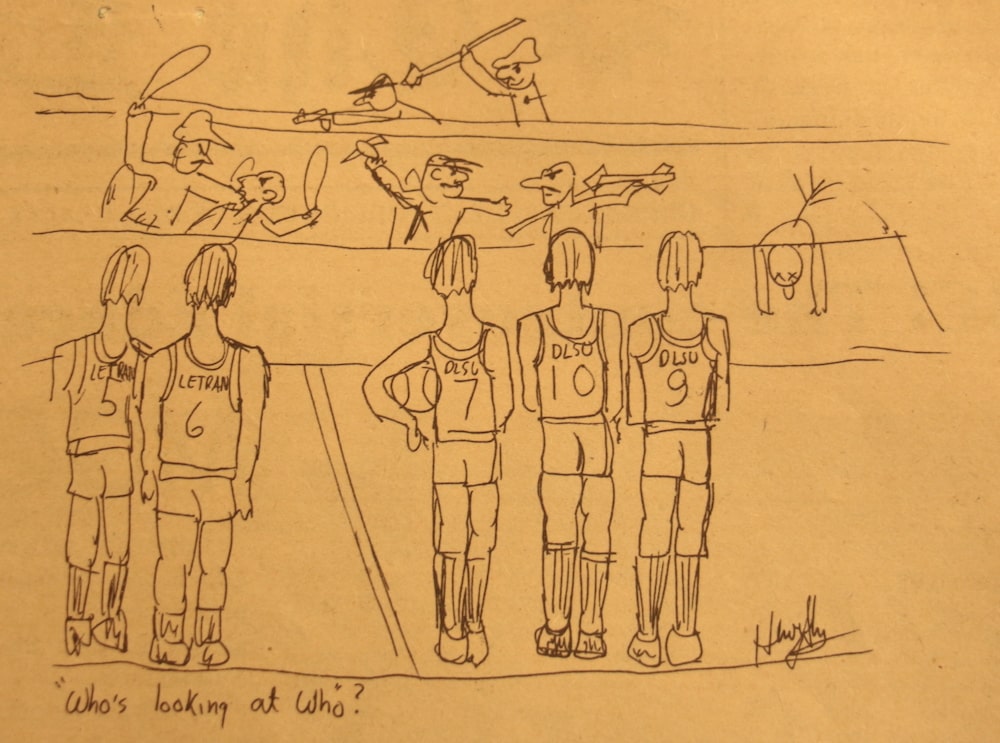 LETRAN
5
LETRAN
6
DLSU
7
DLSU
10
DLSU
9
"Who's looking at Who"?